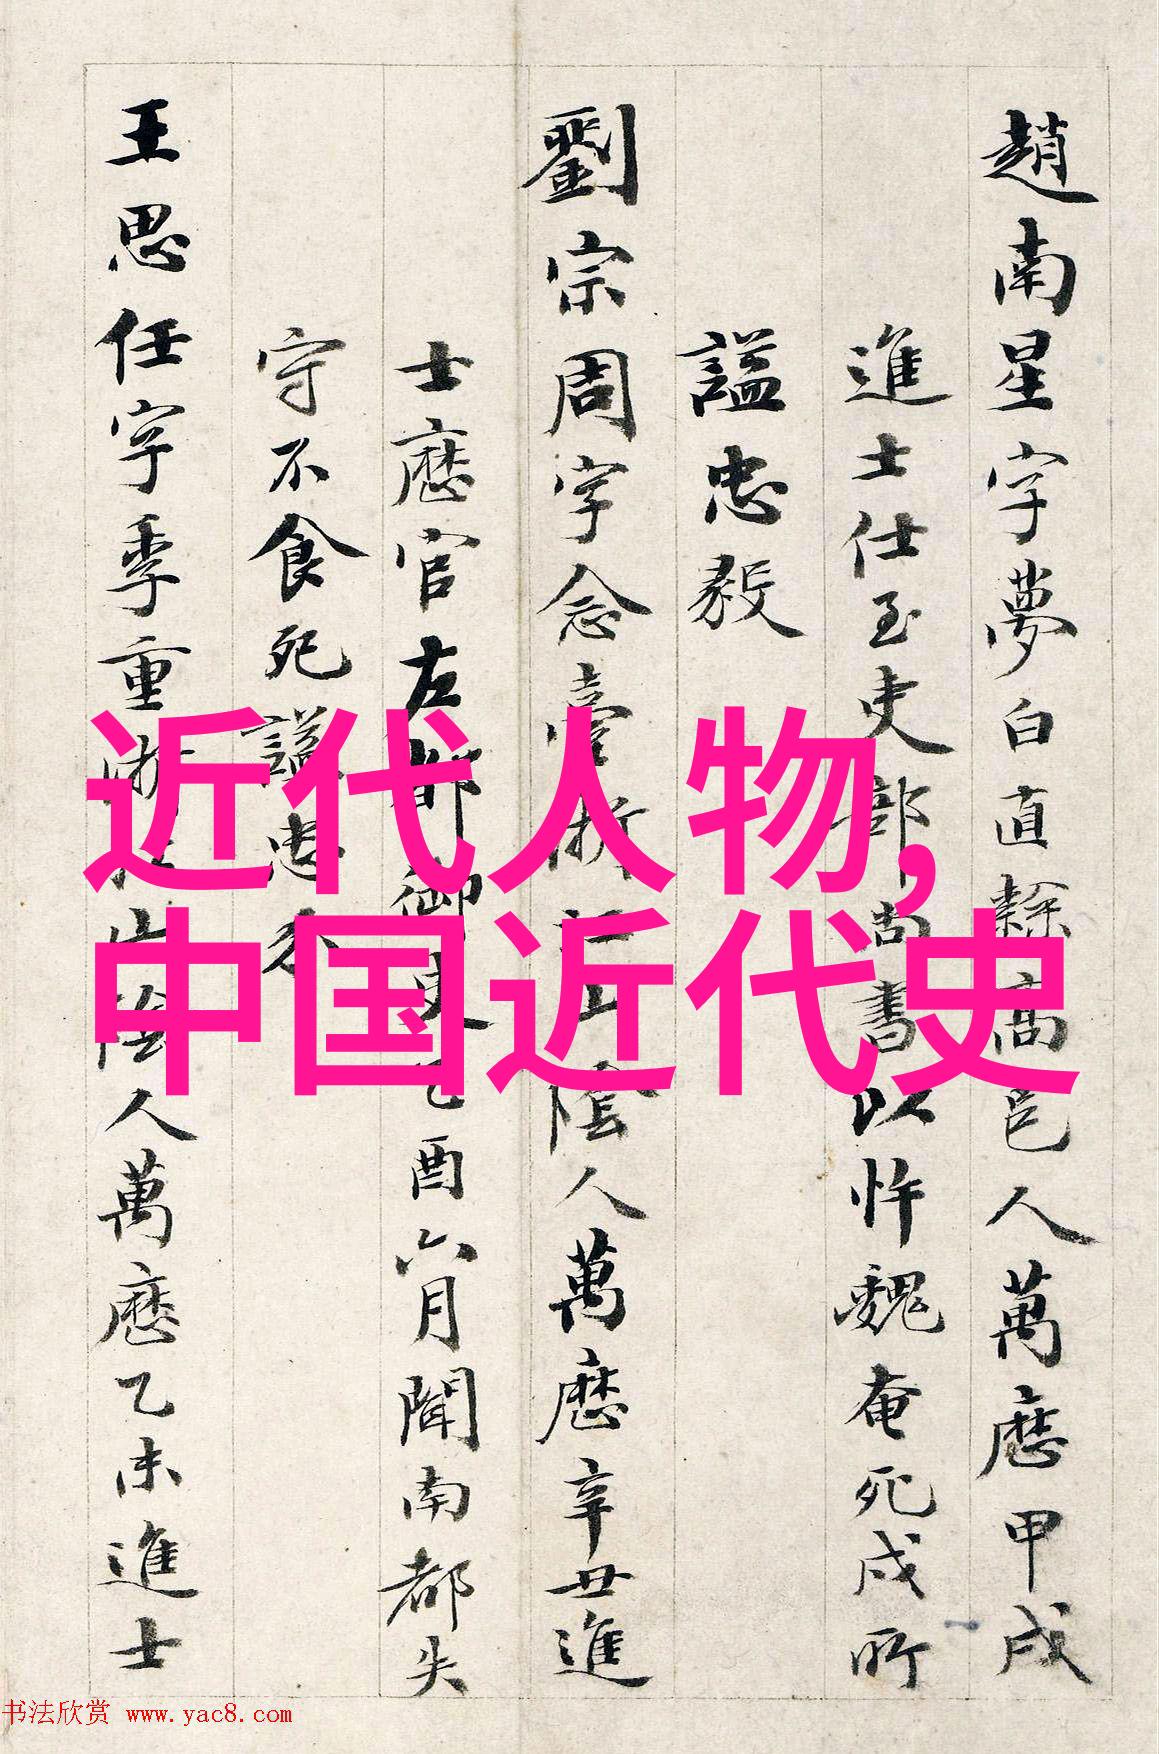 趙南星字夢白直隸高邑人萬曆甲戌
進士仕至吏部尚書以忤魏奄死戍所
謚忠毅
劉宗周字念臺浙江山陰人萬曆辛丑進
士歷官左都御史乙酉六月聞南都失
守不食死謚忠介
王思任字季重浙江山陰人萬曆乙未進士
近代人物,
中国近代史
书法欣赏 www.yac8.com